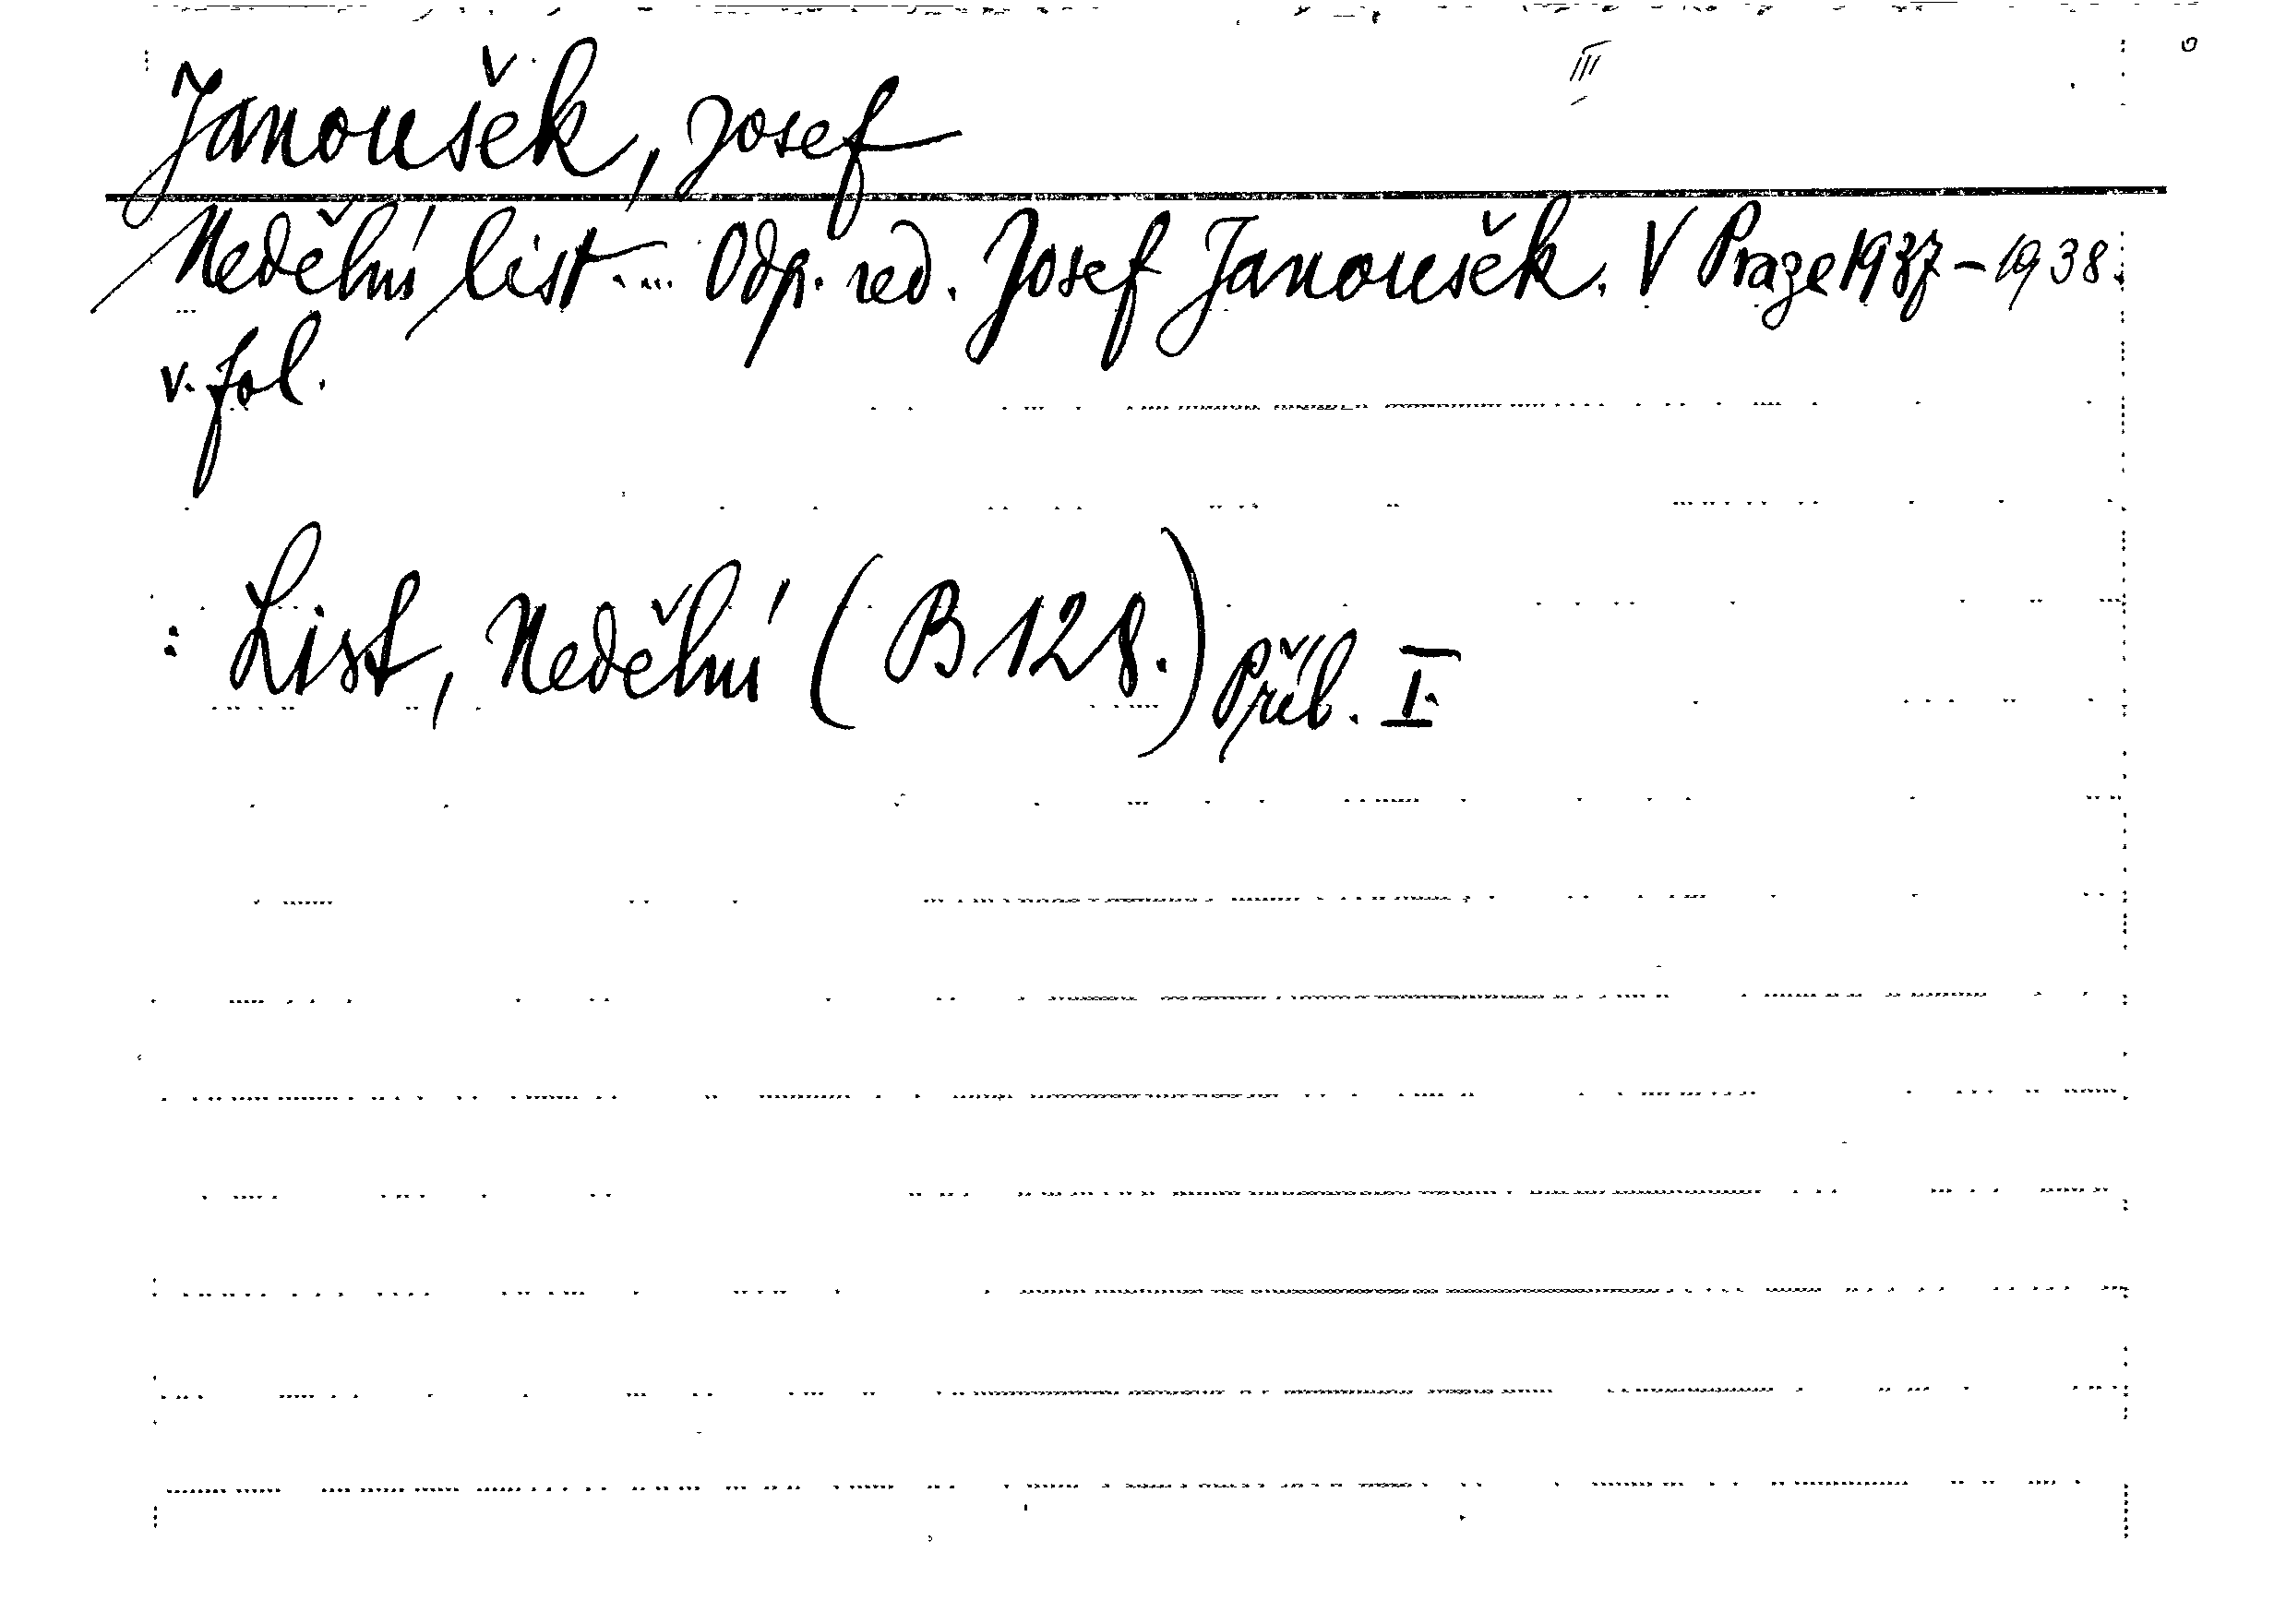 Janoušek, Josef
Nedělní list.... Odp. red. Josef Janoušek. V Praze 1937-1938.
v. fol.
: List, Nedělní (B 128.) Příl. I.